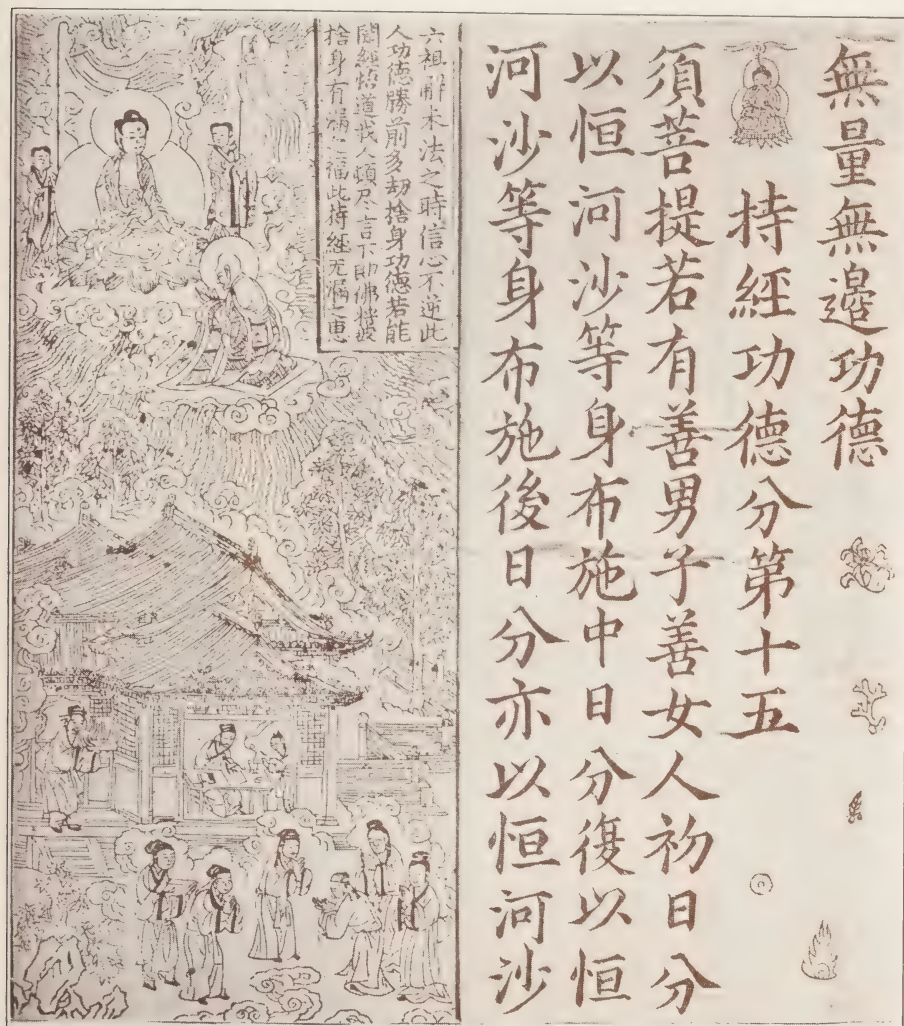 無量無邊功德
持經功德分第十五
須菩提若有善男子善女人初日分
以恒河沙等身布施中日分復以恒
河沙等身布施後日分亦以恒河沙
六祖解末法之時信心不逆此
人功德勝前多劫捨身功德若能
聞經悟道我人頓尽言下即佛彼
捨身有漏之福此持經无漏之惠